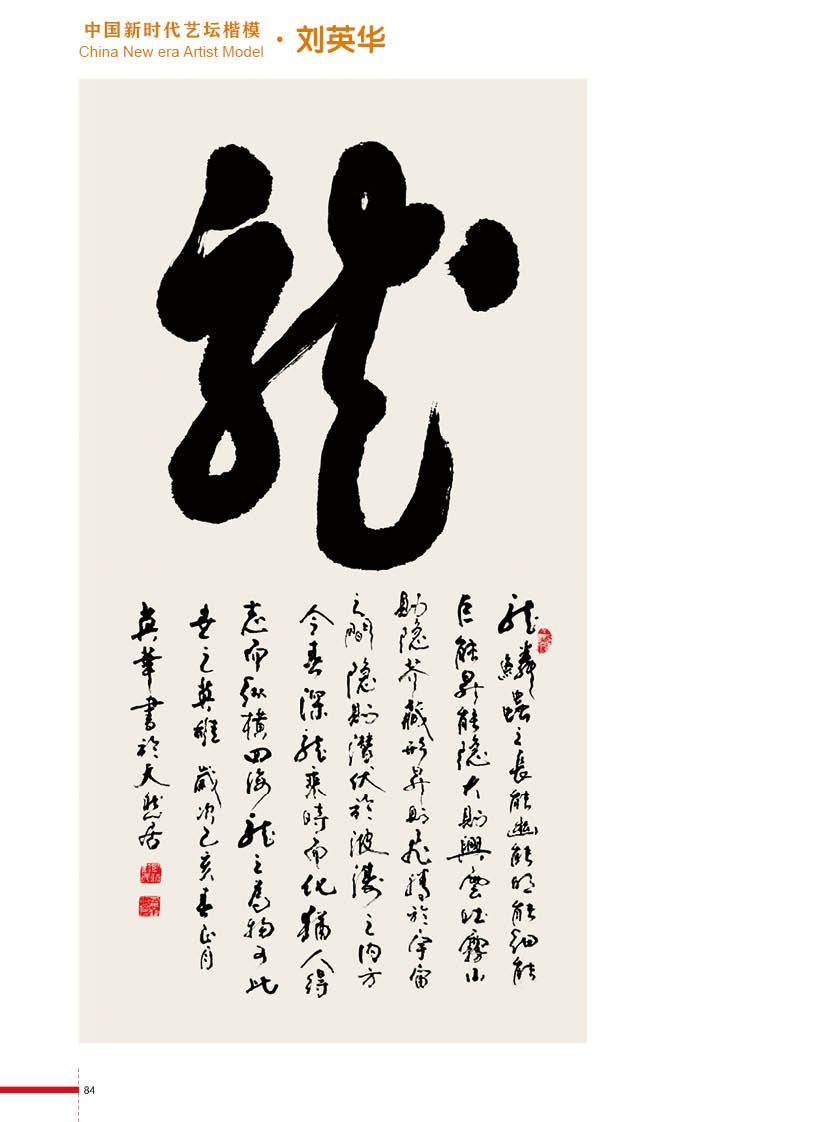 中国新时代艺坛楷模
China New era Artist Model
· 刘英华
龍
龍鱗蟲之長能幽能明能細能
巨能昇能隐大則興雲吐霧小
則隐芥藏形昇則飛騰於宇宙
之間隐則潜伏於波濤之内方
今春深龍乘時而化猶人得
志而纵横四海龍之為物可比
世之英雄 歲次己亥春正月
英華書於天然居
84